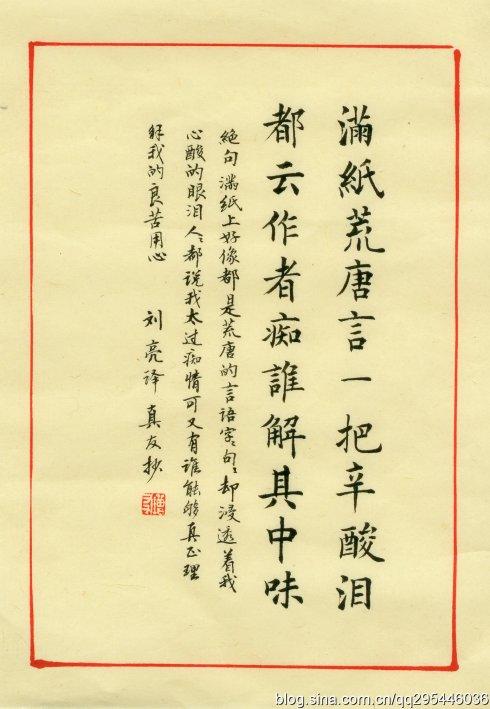 滿紙荒唐言一把辛酸泪
都云作者痴誰解其中味
絕句 滿纸上好像都是荒唐的言語字々句々却浸透着我
心酸的眼泪人々都说我太过痴情可又有誰能够真正理
解我的良苦用心
刘亮译 真友抄
blog.sina.com.cn/qq295446036